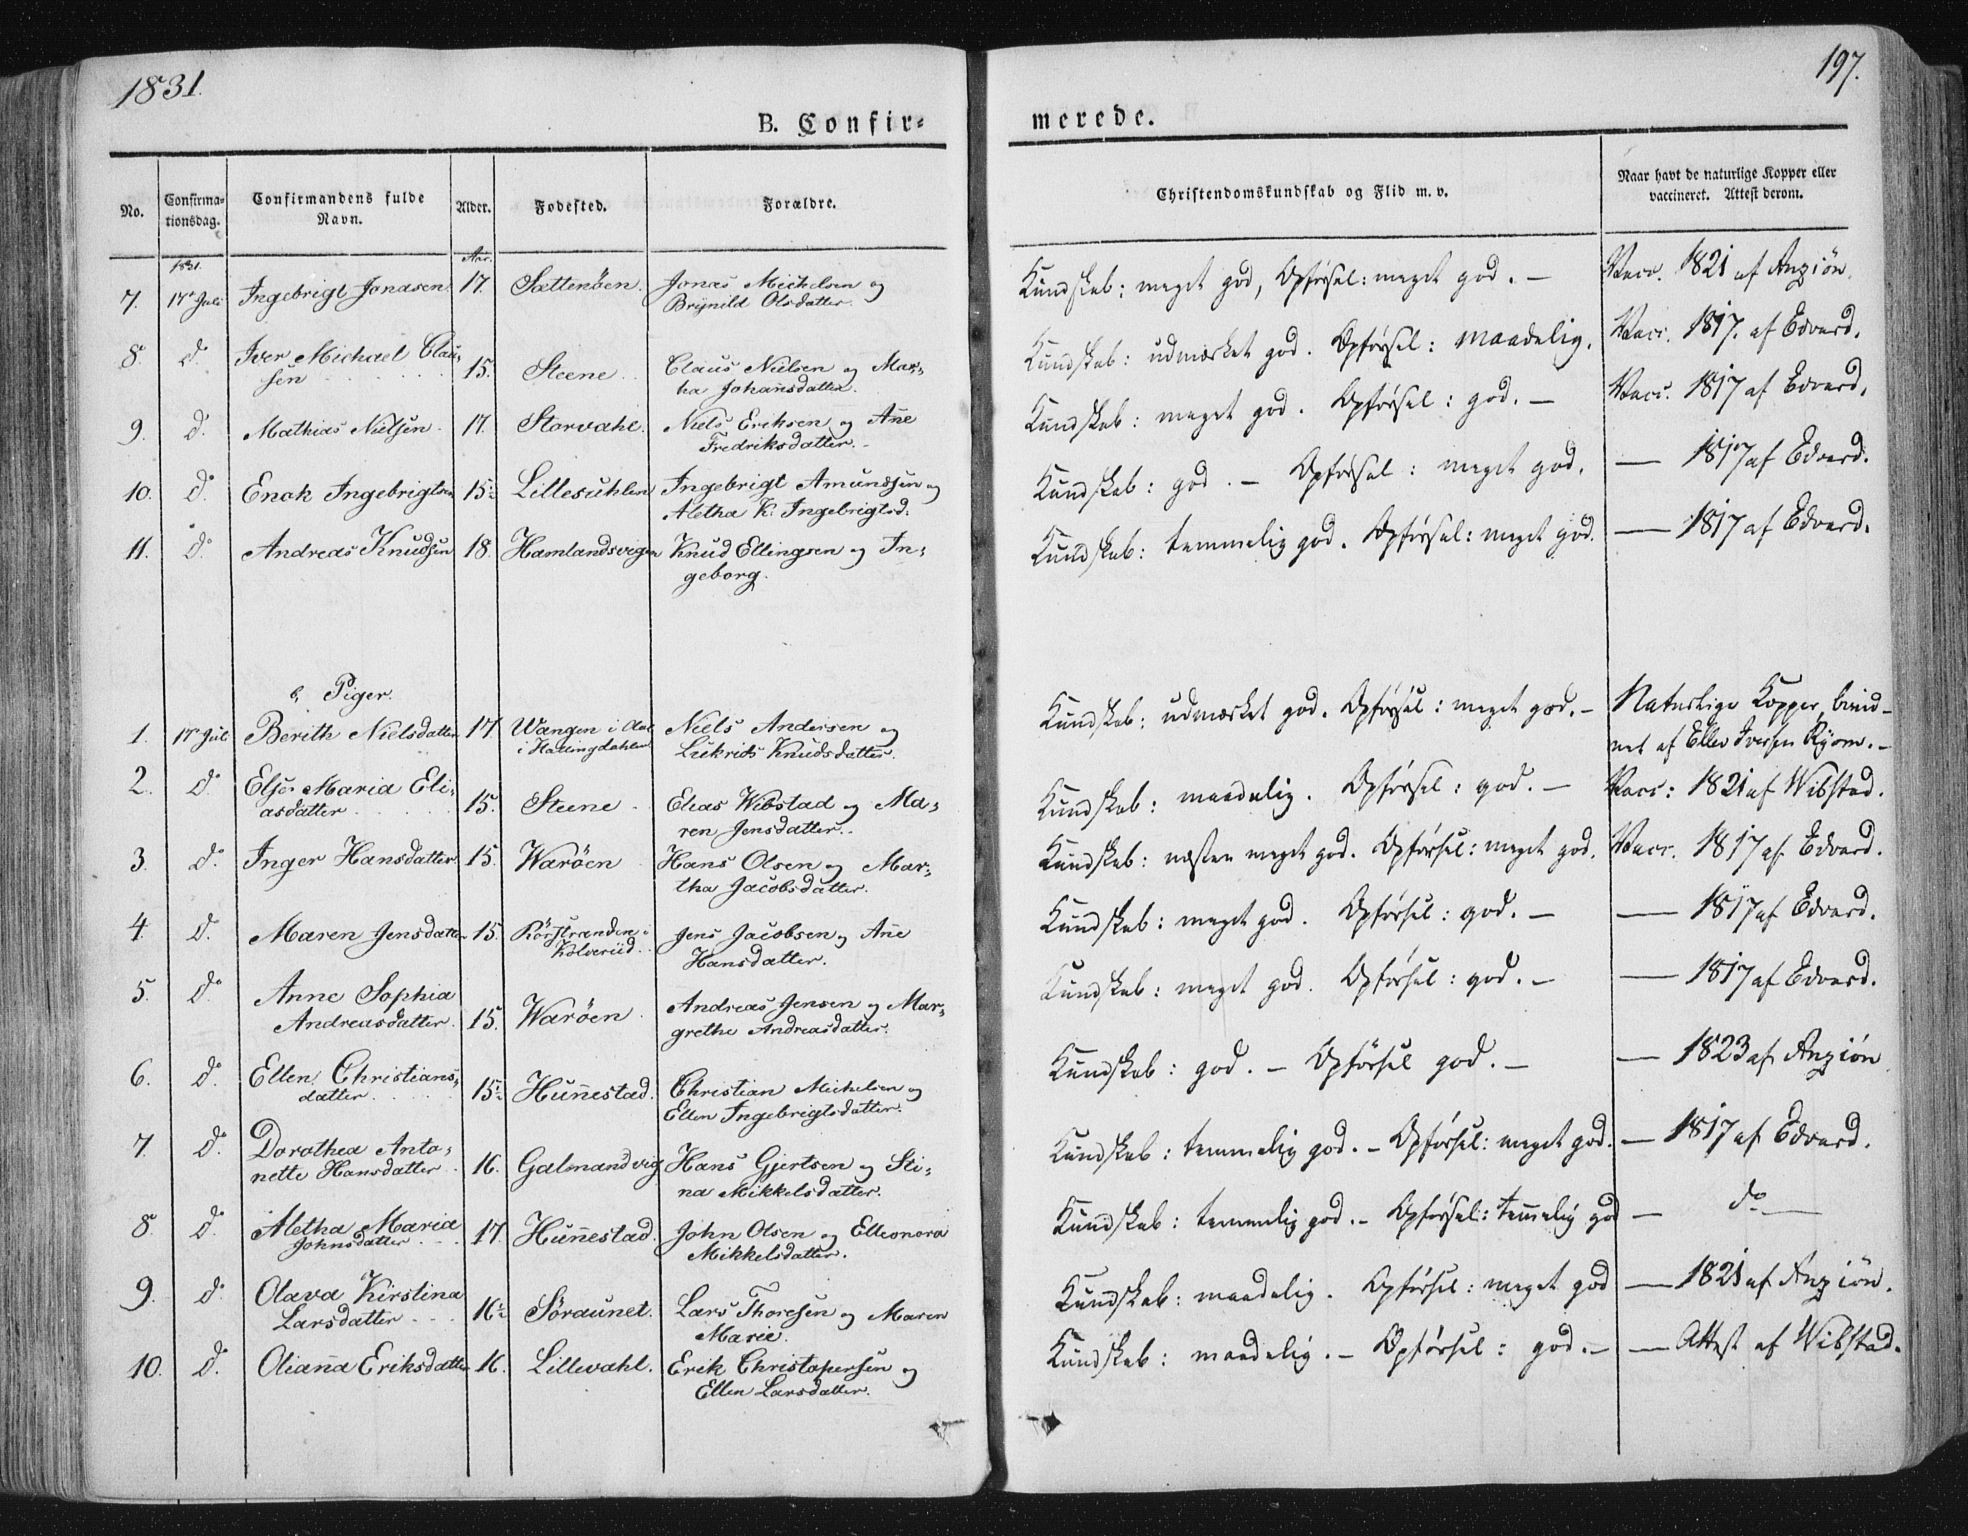 1831.
197.
B. Confir-
merede.
No.
Confirma-
tionsdag.
Confirmandens fulde
Navn.
Alder.
Fodested.
Forældre.
Christendomskundskab og Flid m. v.
Naar havt de naturlige Kopper eller
vaccineret. Attest derom.
1831.
Aar.
7. 17de Juli Ingebrigt Jonasen 17. Sættenöen. Jonas Michelsen og
Brynild Olsdatter.
Kundskab: meget god, Opførsel: meget god. — Vacc. 1821 af Anziön.
8 do. Iver Michael Clau-
sen 15. Steene. Claus Nielsen og Mar-
ha Johansdatter.
Kundskab: udmærket god. Opførsel: maadelig. Vacc. 1817. af Edvard.
9. do. Mathias Nielsen. 17. Storvahl. Niels Eriksen og Ane
Fredriksdatter.
Kundskab: meget god. Opførsel: god. — Vacc. 1817 af Edvard.
10. do. Enok Ingebrigtsen 15½ Lillesuhlen Ingebrigt Amundsen og
Aletha K. Ingebrigtsd.
Kundskab: god. — Opførsel: meget god. — 1817 af Edvard.
11. do. Andreas Knudsen 18. Hamlandsvigen Knud Ellingsen og In-
geborg.
Kundskab: temmelig god. Opførsel: meget god. — 1817 af Edvard.
b, Piger.
1. 17de Juli Berith Nielsdatter 17. Wangen i Aal
i Hallingdahlen Niels Andersen og
Lukrids Knudsdatter.
Kundskab: udmærket god. Opførsel: meget god. — Naturlige Kopper, bevid-
net af Eller Iversen Ryom. —
2. do. Else Maria Eli-
asdatter 15. Steene Elias Wibstad og Ma-
ren Jensdatter.
Kundskab: maadelig. Opførsel: god. — Vacc: 1821 af Wibstad.
3. do. Inger Hansdatter. 15. Waröen Hans Olsen og Mar-
tha Jacobsdatter.
Kundskab: næsten meget god. Opførsel: meget god. Vacc. 1817 af Edvard.
4. do. Maren Jensdatter 15. Rörstranden i
Kolveriid. Jens Jacobsen og Ane
Hansdatter.
Kundskab: meget god. Opførsel: god. — — 1817 af Edvard.
5. do. Anne Sophia
Andreasdatter. 15. Waröen Andreas Jensen og Mar-
grethe Andreasdatter.
Kundskab: meget god. Opførsel: god. — — 1817 af Edvard.
6. do. Ellen Christians-
datter. 15½ Hunnestad. Christian Michelsen og
Ellen Ingebrigtsdatter.
Kundskab: god. — Opførsel god. — — 1823 af Anziön
7 do. Dorothea Anto-
nette Hansdatter 16. Galmandvig Hans Gjertsen og Sti-
na Mikkelsdatter.
Kundskab: temmelig god. — Opførsel: meget god. — 1817 af Edvard.
8. do. Aletha Maria
Johnsdatter 17. Hunnestad. John Olsen og Elleonora
Mikkelsdatter.
Kundskab: temmelig god. — Opførsel: temelig god — do —
9. do. Olava Kirstina
Larsdatter 16½ Söraunet. Lars Thoresen og Maren
Marie.
Kundskab: maadelig. Opførsel: meget god — 1821 af Anziön.
10. do. Oliana Eriksdatter 16. Lillevahl. Erik Christopersen og
Ellen Larsdatter.
Kundskab: maadelig. — Opførsel: god. — — Attest af Wibstad.